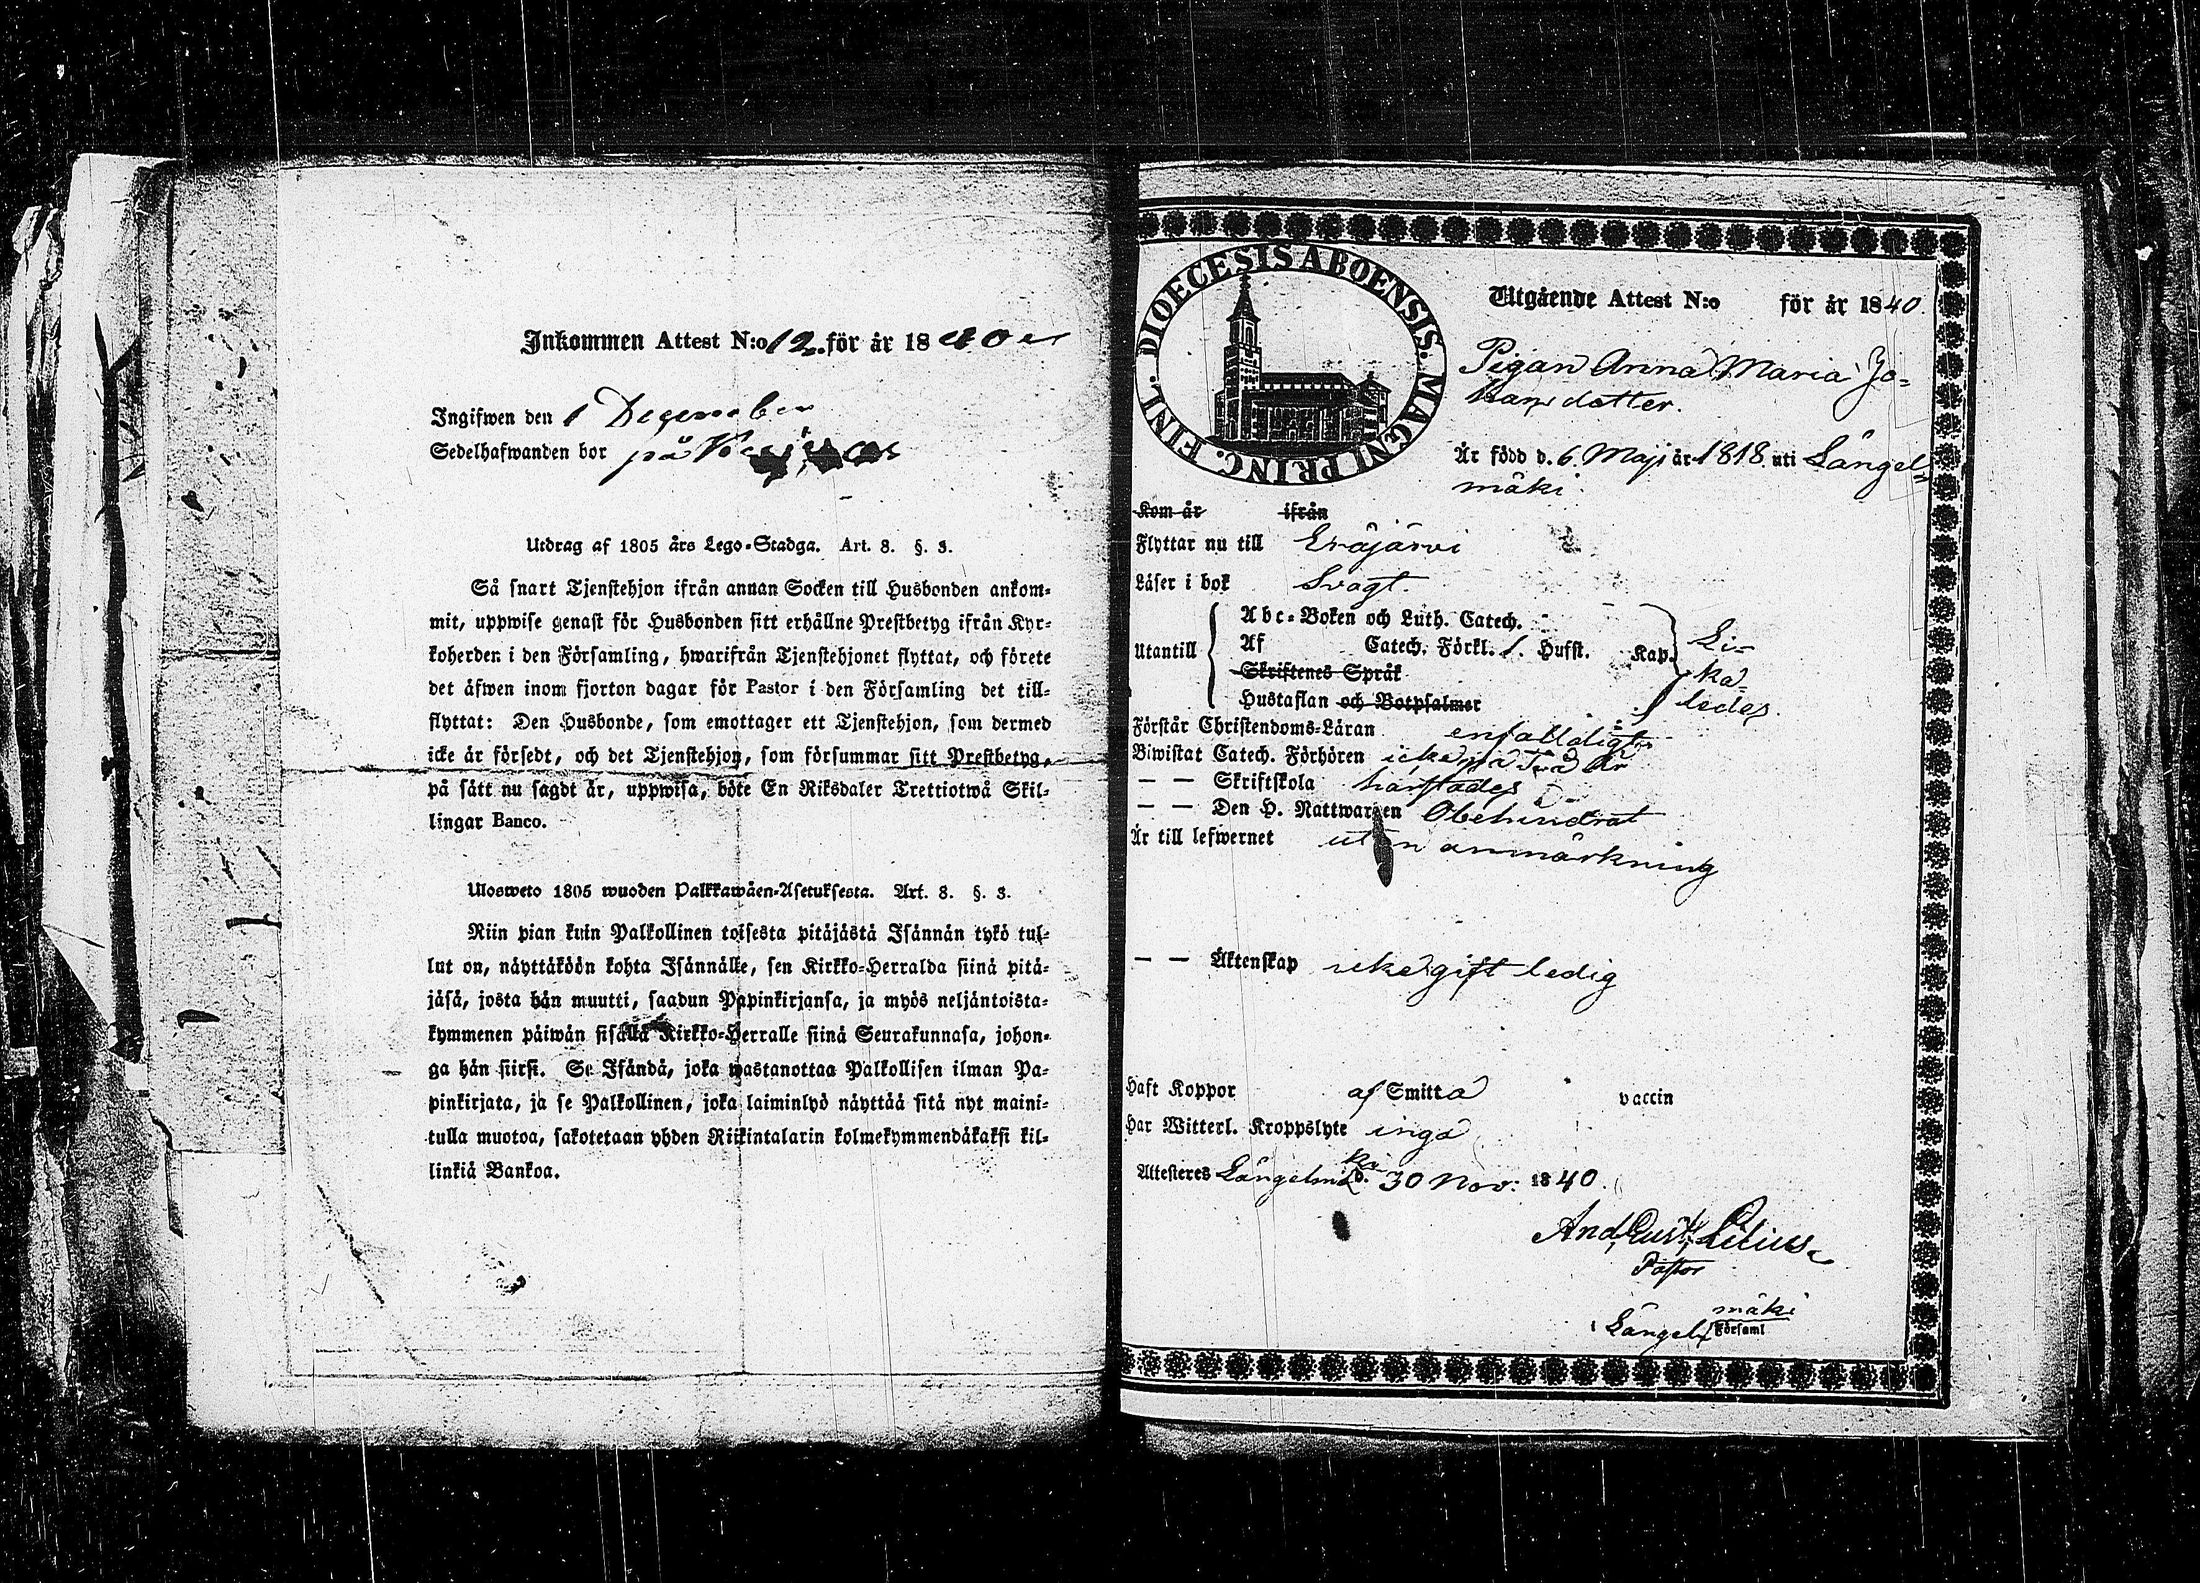 Inkommen Attest N:o 12. för år 1840
Ingifwen den 1 December
Sedelhafwanden bor på
Utdrag af 1805 års Lego-Stadga. Art. 8. §. 3.
Så snart Tjenstehjon ifrån annan Socken till Husbonden ankom-
mit, uppwise genast för Husbonden sitt erhållne Prestbetyg ifrån Kyr-
koherden i den Församling, hwarifrån Tjenstehjonet flyttat, och förete
det äfwen inom fjorton dagar för Pastor i den Församling det till-
flyttat: Den Husbonde, som emottager ett Tjenstehjon, som dermed
icke är försedt, och det Tjenstehjon, som försummar sitt Prestbetyg,
på sätt nu sagdt är, uppwisa, böte En Riksdaler Trettiotwå Skil-
lingar Banco.
Ulosweto 1805 wuoden Palkkawäen-Asetuksesta. Art. 8. §. 3.
Niin pian kuin Palkollinen toisesta pitäjästä Isännän tykö tul-
lut on, näyttäköön kohta Isännälle, sen Kirkko-Herralda siinä pitä-
jäsä, josta hän muutti, saadun Papinkirjansa, ja myös neljäntoista-
kymmenen päiwän sisällä Kirkko-Herralle siinä Seurakunnasa, johon-
ga hän siirsi. Se Isändä, joka wastanottaa Palkollisen ilman Pa-
pinkirjata, ja se Palkollinen, joka laiminlyö näyttää sitä nyt maini-
tulla muotoa, sakotetaan yhden Riikintalarin kolmekymmendäkaksi kil-
linkiä Bankoa.
DIOECESIS ABOENSIS. MAGNI PRINC. FINL.
Utgående Attest N:o för år 1840.
Pigan Anna Maria Jo-
hansdotter.
Är född d. 6. Maji år 1818. uti Längel-
mäki.
Kom år ifrån
Flyttar nu till Eräjärvi
Läser i bok Svagt.
Abc-Boken och Luth. Catech.
Utantill Af Catech. Förkl. 1. Hufst. Kap. Li-
Skriftenes Språk ka-
Hustaflan och Botpsalmer ledes.
Förstår Christendoms-Läran enfaldigt
Biwistat Catech. Förhören icke på Två År
— — Skriftskola härstädes
— — Den H. Nattwarden Obehindrat
Är till lefwernet utan anmärkning
— — Äktenskap icke gift ledig
Haft Koppor af Smitta vaccin
Har Witterl. Kroppslyte inga
Attesteres Längelmäki d. 30 Nov: 1840.
And. Gust. Lilius
Pastor
i Längelmäki Församl